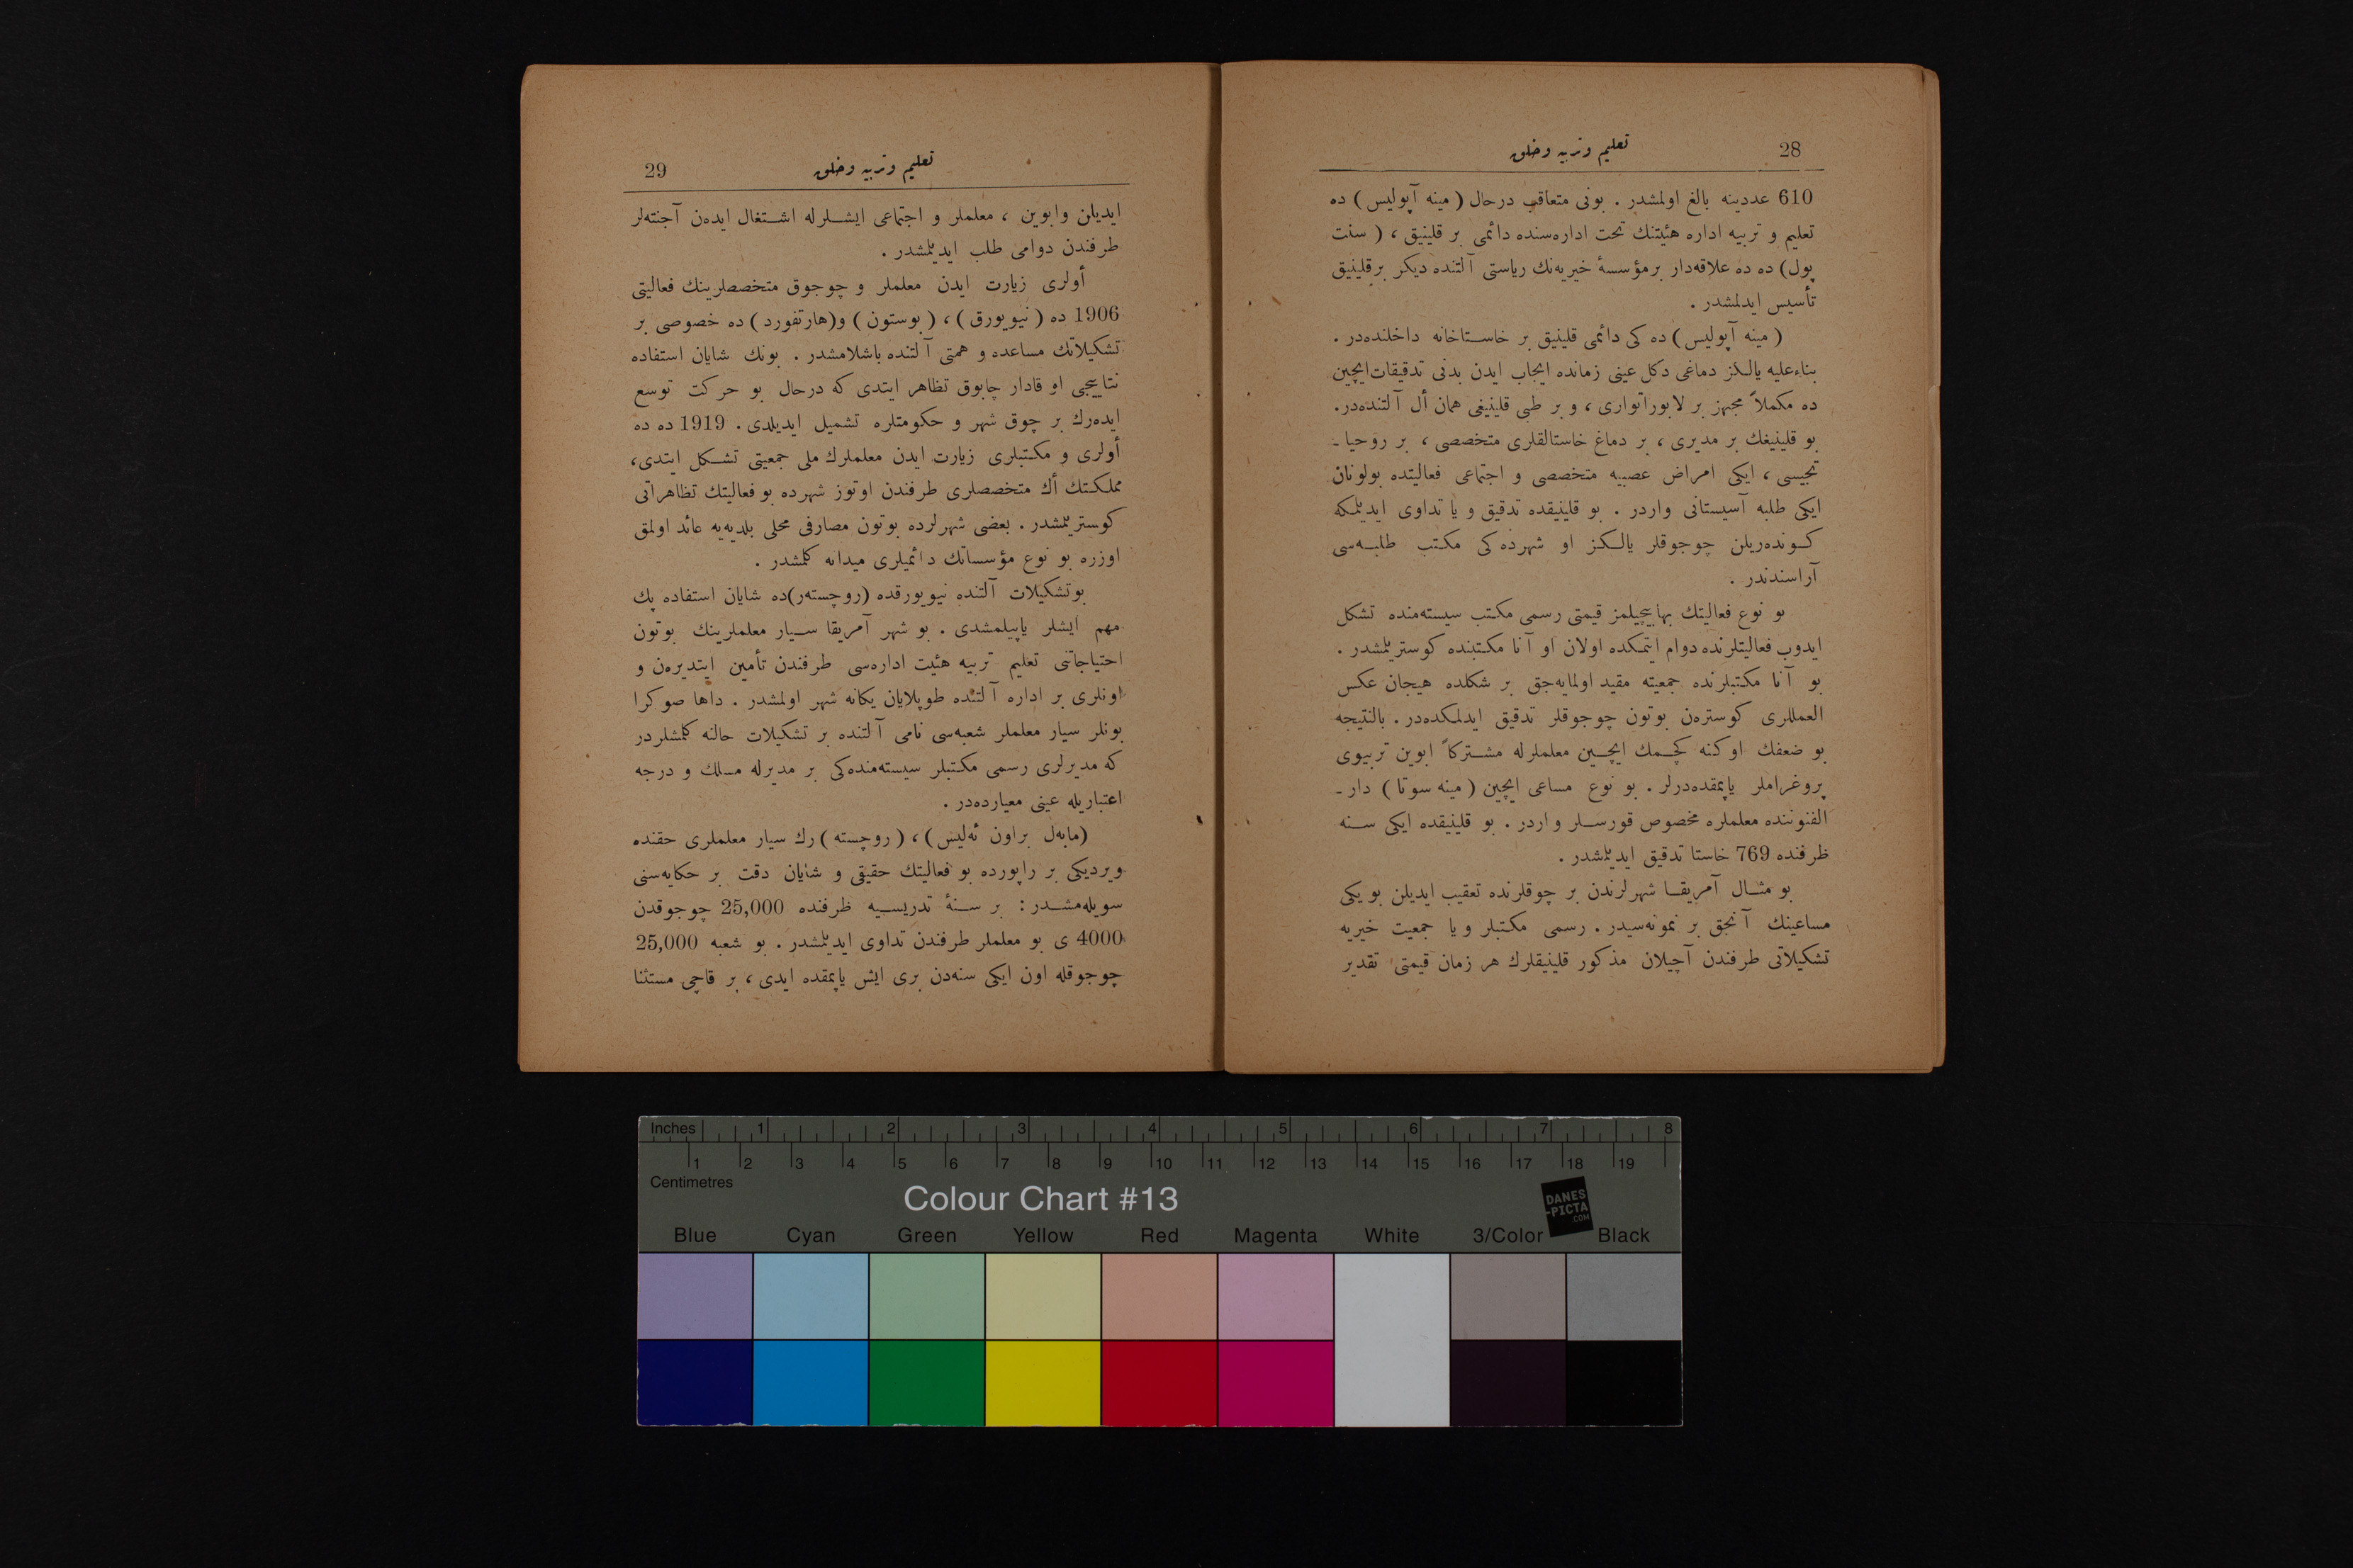 28
تعلیم وتربیه وخلق
610 عددینه بالغ اولمشدر . بونی متعاقب درحال (مینه آپولیس) ده
تعلیم و تربیه اداره هیئتنك تحت اداره‌سنده دائمی بر قلینیق ، ( سنت
پول) ده ده علاقه‌دار برمؤسسهٔ خیریه‌نك ریاستی آلتنده دیکر برقلینیق
تأسیس ایدلمشدر .
(مینه آپولیس) ده کی دائمی قلینیق بر خاستاخانه داخلنده‌در .
بناءعلیه یالکز دماغی دکل عینی زمانده ایجاب ایدن بدنی تدقیقات‌ایچین
ده مکملاً مجهز بر لابوراتواری ، و بر طبی قلینیغی همان أل آلتنده‌در.
بو قلینیغك بر مدیری ، بر دماغ خاستالقلری متخصصی ، بر روحیا ـ
تجیسی ، ایکی امراض عصبیه متخصصی و اجتماعی فعالیتده بولونان
ایکی طلبه آسیستانی واردر . بو قلینیقده تدقیق و یا تداوی ایدیلمکه
کونده‌ریلن چوجوقلر یالکز او شهرده کی مکتب طلبه‌سی
آراسندندر .
بو نوع فعالیتك بهابیچیلمز قیمتی رسمی مکتب سیسته‌منده تشکل
ایدوب فعالیتلرنده دوام ایتمکده اولان او آنا مکتبنده کوستریلمشدر .
بو آنا مکتبلرنده جمعیته مقید اولمایه‌جق بر شکلده هیجان عکس
العمللری کوستره‌ن بوتون چوجوقلر تدقیق ایدلمکده‌در . بالنتیجه
بو ضعفك اوکنه کچمك ایچین معلملرله مشترکاً ابوین تربیوی
پروغراملر یاپمقده‌درلر . بو نوع مساعی ایچین (مینه سوتا) دار ـ
الفنوننده معلملره مخصوص قورسلر واردر . بو قلینیقده ایکی سنه
ظرفنده 769 خاستا تدقیق ایدیلمشدر .
بو مثال آمریقا شهرلرندن بر چوقلرنده تعقیب ایدیلن بویکی
مساعینك آنجق بر نمونه‌سیدر . رسمی مکتبلر و یا جمعیت خیریه
تشکیلاتی طرفندن آچیلان مذکور قلینیقلرك هر زمان قیمتی تقدیر
تعلیم وتربیه وخلق
29
ایدیلن وابوین ، معلملر و اجتماعی ایشلرله اشتغال ایده‌ن آجنته‌لر
طرفندن دوامی طلب ایدیلمشدر .
أولری زیارت ایدن معلملر و چوجوق متخصصلرینك فعالیتی
1906 ده (نیویورق) ، (بوستون) و(هارتفورد) ده خصوصی بر
تشکیلاتك مساعده و همتی آلتنده باشلامشدر . بونك شایان استفاده
نتاییجی او قادار چابوق تظاهر ایتدی که درحال بو حرکت توسع
ایده‌رك بر چوق شهر و حکومتلره تشمیل ایدیلدی . 1919 ده ده
أولری و مکتبلری زیارت ایدن معلملرك ملی جمعیتی تشکل ایتدی،
مملکتك أك متخصصلری طرفندن اوتوز شهرده بو فعالیتك تظاهراتی
کوستریلمشدر . بعضی شهرلرده بوتون مصارفی محلی بلدیه‌یه عائد اولمق
اوزره بو نوع مؤسساتك دائمیلری میدانه کلمشدر .
بوتشکیلات آلتنده نیویورقده (روچسته‌ر)ده شایان استفاده پك
مهم ایشلر یاپیلمشدی . بو شهر آمریقا سیار معلملرینك بوتون
احتیاجاتنی تعلیم تربیه هیئت اداره‌سی طرفندن تأمین ایتدیره‌ن و
اونلری بر اداره آلتنده طوپلایان یکانه شهر اولمشدر . داها صوکرا
بونلر سیار معلملر شعبه‌سی نامی آلتنده بر تشکیلات حالنه کلمشلردر
که مدیرلری رسمی مکتبلر سیسته‌منده‌کی بر مدیرله مسلك و درجه
اعتباریله عینی معیارده‌در .
(مابه‌ل براون ئه‌لیس) ، (روچسته) رك سیار معلملری حقنده
ویردیکی بر راپورده بو فعالیتك حقیقی و شایان دقت بر حکایه‌سنی
سویله‌مشدر : بر سنهٔ تدریسیه ظرفنده 25,000 چوجوقدن
4000 ی بو معلملر طرفندن تداوی ایدیلمشدر . بو شعبه 25,000
چوجوقله اون ایکی سنه‌دن بری ایش یاپمقده ایدی ، بر قاچی مستثنا
Inches 1 2 3 4 5 6 7 8
1 2 3 4 5 6 7 8 9 10 11 12 13 14 15 16 17 18 19
Centimetres
Colour Chart #13
DANES
-PICTA
.COM
Blue Cyan Green Yellow Red Magenta White 3/Color Black